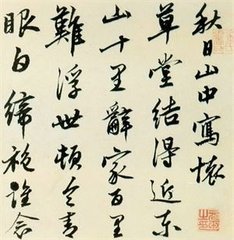 秋日山中寫懷
草堂結得近東
山十里辭家百里
難浮世頓令青
眼白締袍誰念